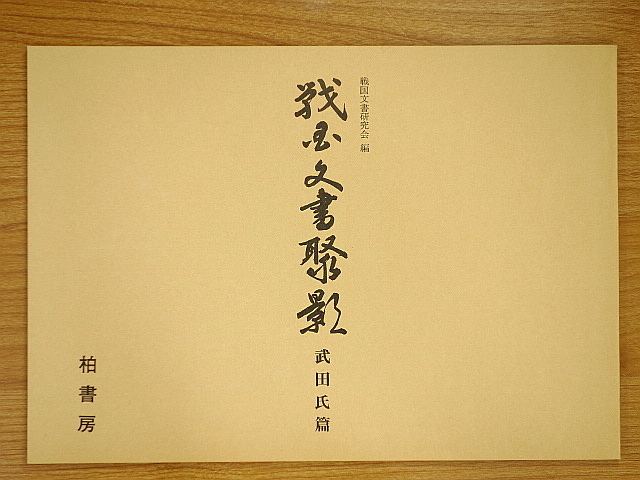 戦国文書研究会 編
戦国文書聚影
武田氏篇
柏書房